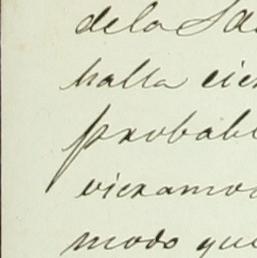 dela Sa
halla cier
probabl
vieramo
modo que